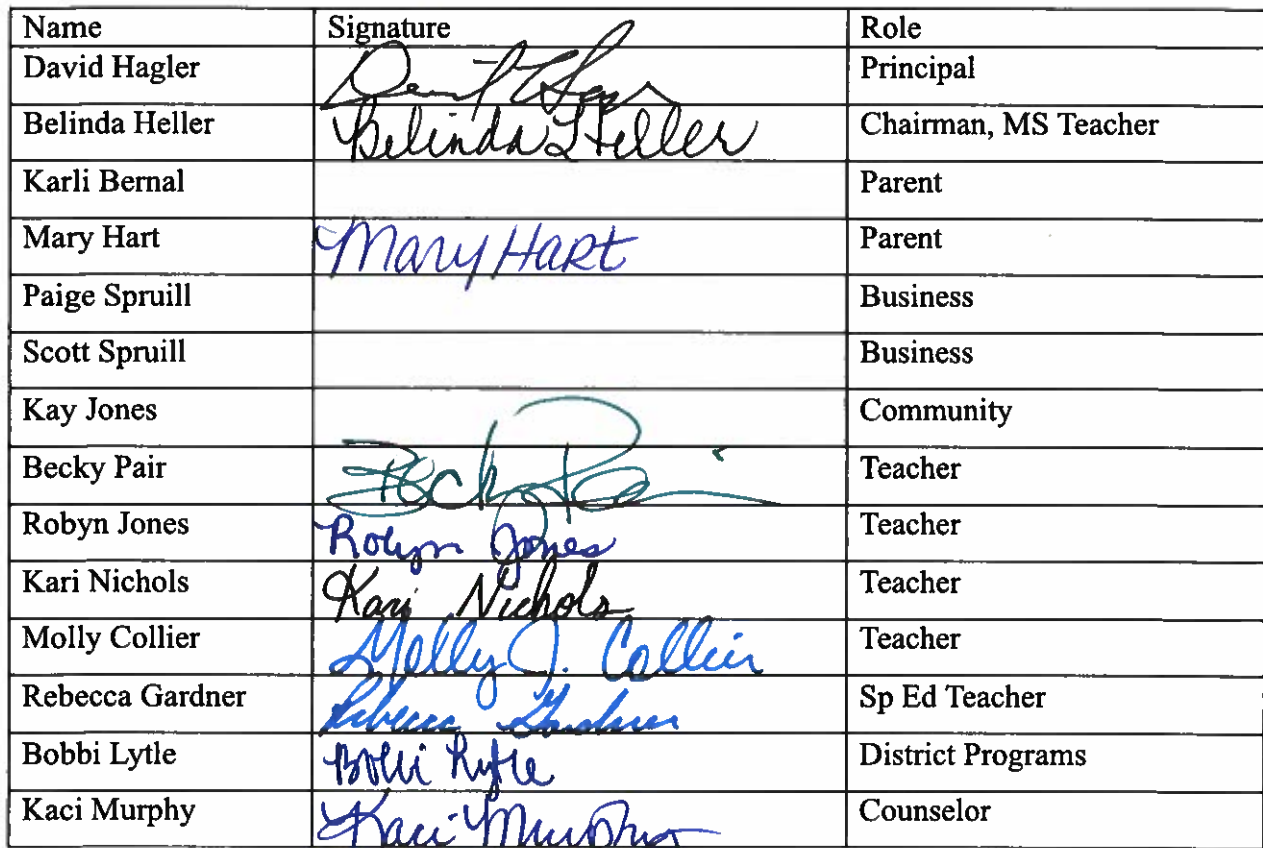 Name Signature Role
David Hagler Principal
Belinda Heller Belinda L Heller Chairman, MS Teacher
Karli Bernal Parent
Mary Hart Mary Hart Parent
Paige Spruill Business
Scott Spruill Business
Kay Jones Community
Becky Pair Becky Pair Teacher
Robyn Jones Robyn Jones Teacher
Kari Nichols Kari Nichols Teacher
Molly Collier Molly J. Collier Teacher
Rebecca Gardner Rebecca Gardner Sp Ed Teacher
Bobbi Lytle Bobbi Lytle District Programs
Kaci Murphy Kaci Murphy Counselor